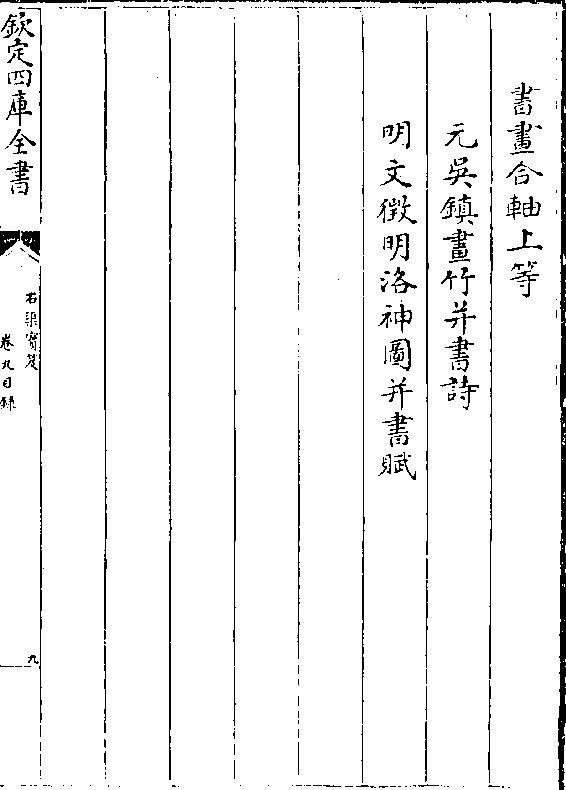 書畫合軸上等
元吳鎮畫竹并書詩
明文徴明洛神圖并書賦
欽定四庫全書
石渠寶笈
卷九目錄
九